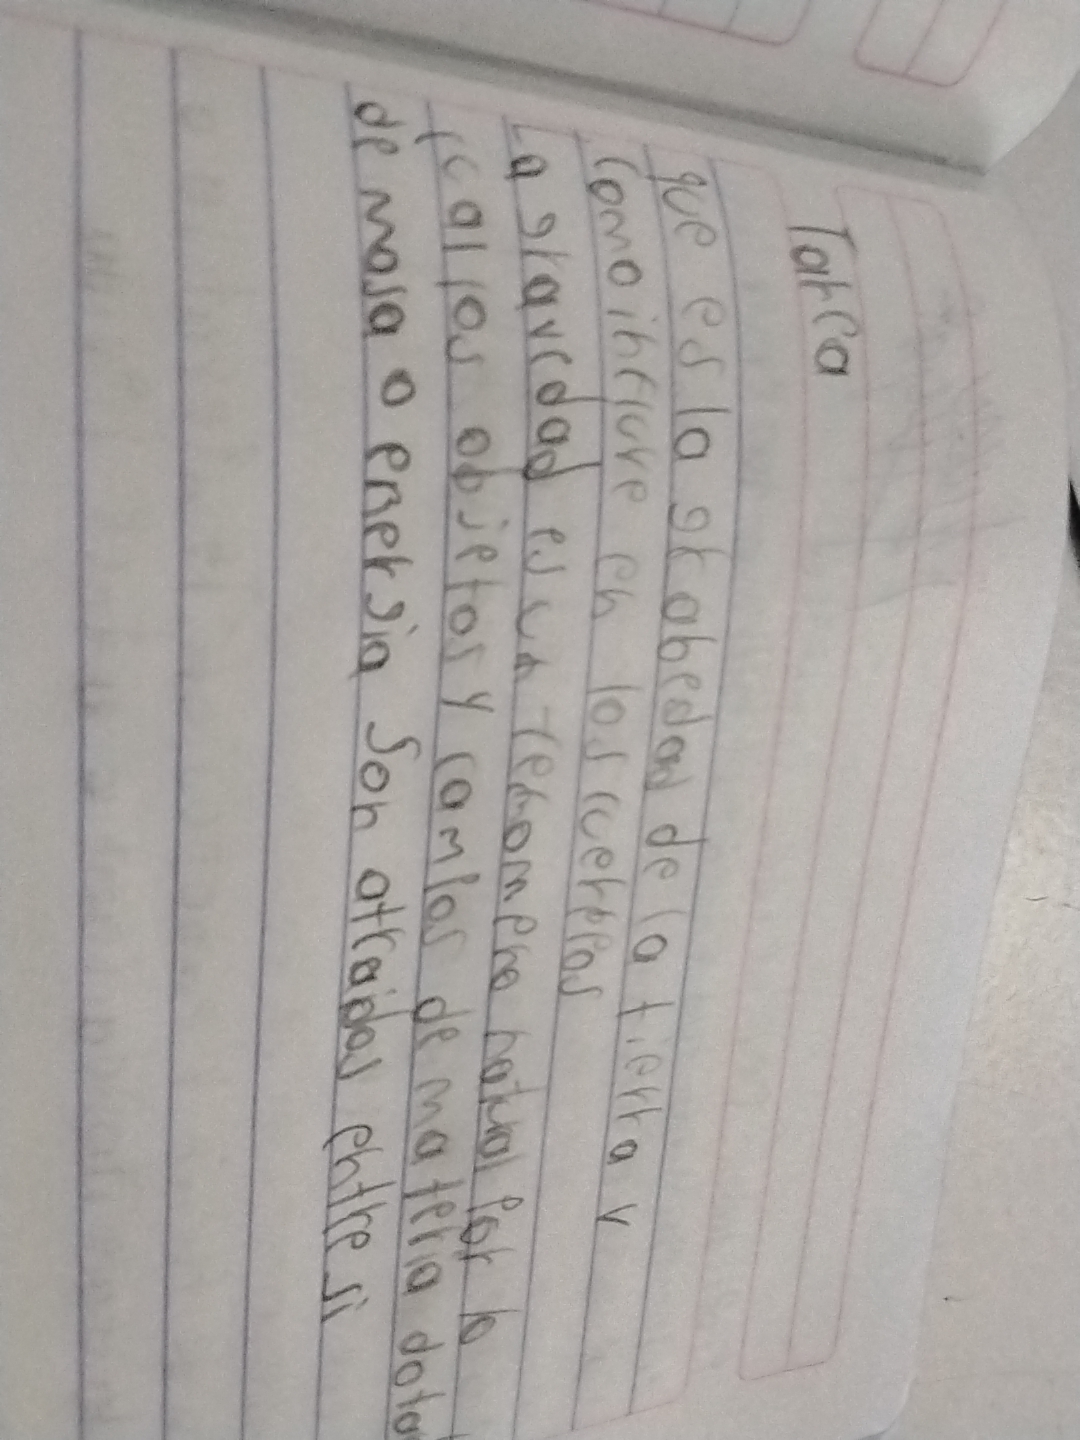 Tarea
que es la grabedad de la tierra y
como infiuye en los cuerpos
La gravedad es un fenomeno natural por lo
cal los objetos y campos de materia dota
de masa o energia son atraidas entre si